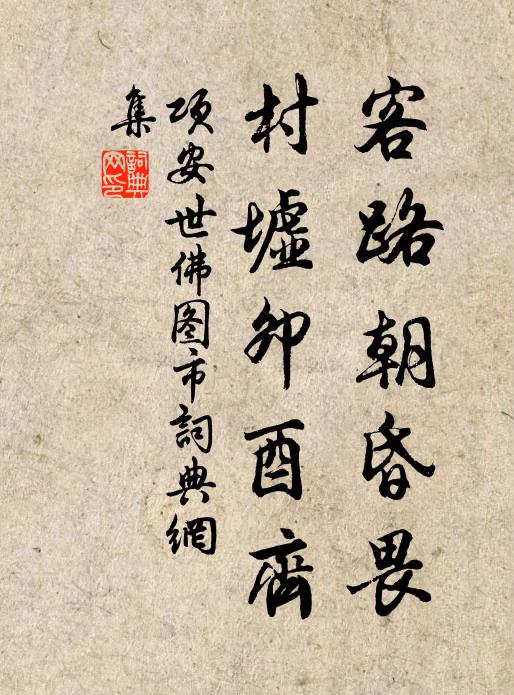 客路朝昏畏
村墟卯酉齊
项安世佛图市詞典網
集
詞典
网印